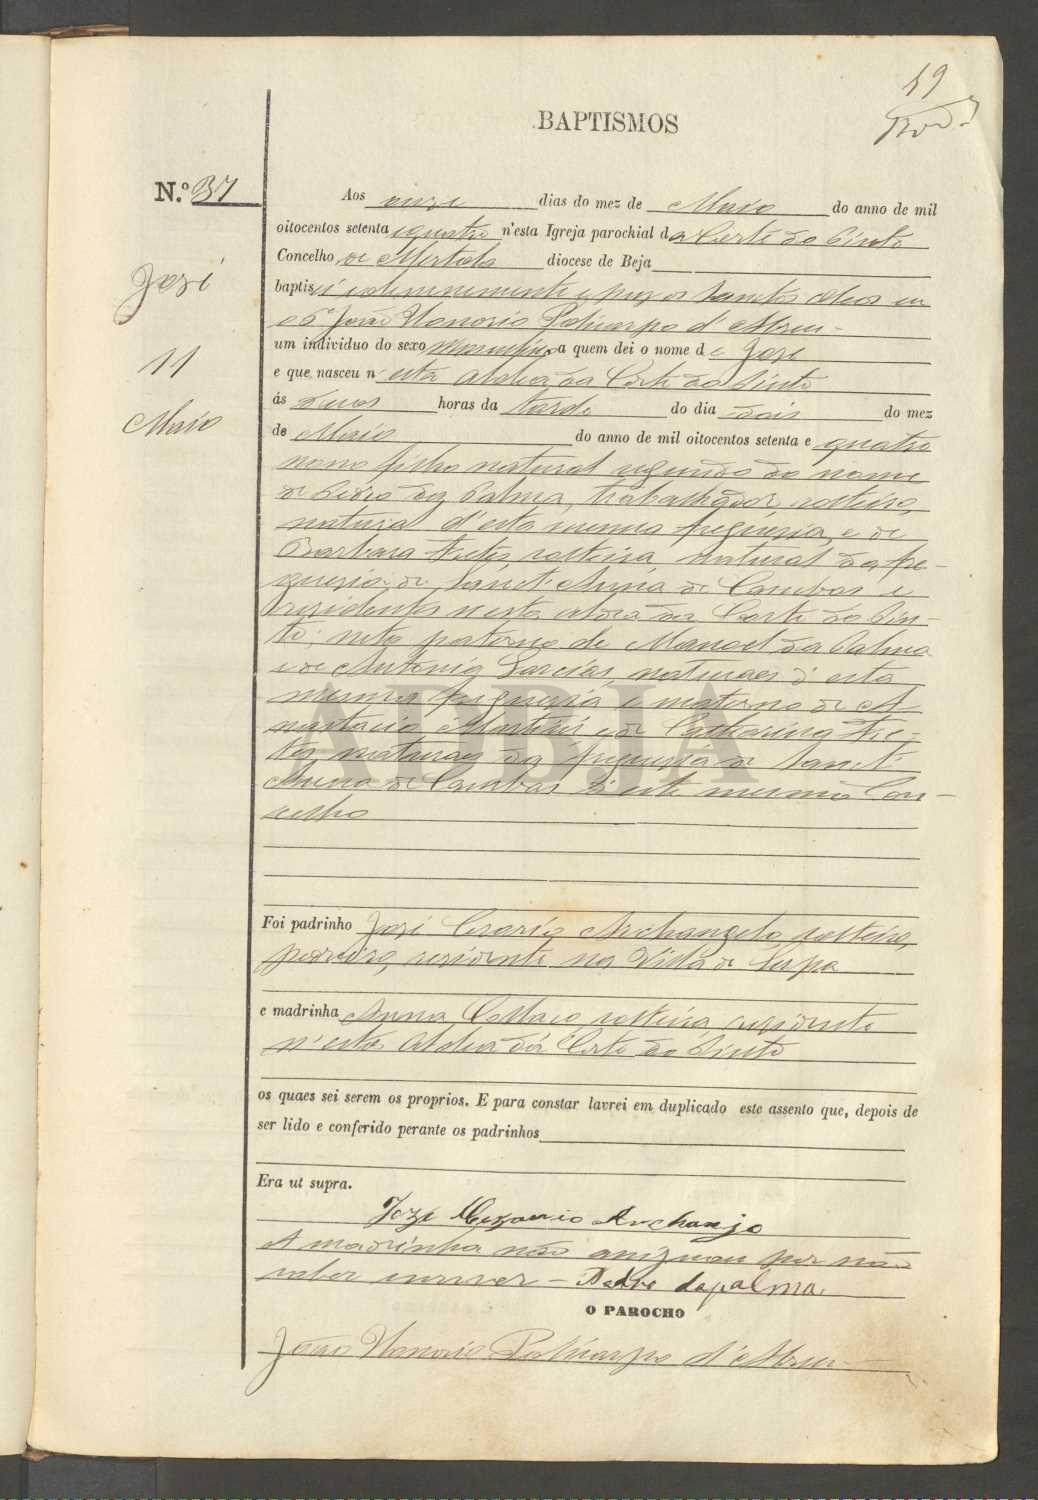 49
BAPTISMOS
N.º 37
José
11
Maio
Aos onze dias do mez de Maio do anno de mil
oitocentos setenta e quatro n'esta Igreja parochial da Corte do Pinto
Concelho de Mertola diocese de Beja
baptisei solemnemente e puz os Santos Oleos eu
o Pe João Honorio Policarpo d'Abreu
um individuo do sexo Masculino a quem dei o nome de Jose
e que nasceu n'esta Aldea da Corte do Pinto
ás duas horas da tarde do dia dois do mez
de Maio do anno de mil oitocentos setenta e quatro
filho natural segundo do nome
de Pedro da Palma, trabalhador, solteiro,
natural d'esta mesma freguesia, e de
Barbara solteira, natural da fre-
guesia de Sanct'Anna de Cambas e
residentes n'esta aldea da Corte do Pin-
to; neto paterno de Manoel da Palma
e de Antonia Garcias, naturaes d'esta
mesma freguesia e materno de A-
nastacio Martins e de Catharina
naturaes da freguesia de Sanct'
Anna de Cambas d'este mesmo Con-
celho
ASBJA
Foi padrinho José Cesario Archangelo, solteiro,
pedreiro, residente na Villa de Serpa
e madrinha Anna Collaço, solteira, residente
n'esta Aldea da Corte do Pinto
os quaes sei serem os proprios. E para constar lavrei em duplicado este assento que, depois de
ser lido e conferido perante os padrinhos
Era ut supra.
Joze Cezario Archanjo
A madrinha não asignou por não
saber escrever — Pedro dapalma.
O PAROCHO
João Honorio Policarpo d'Abreu